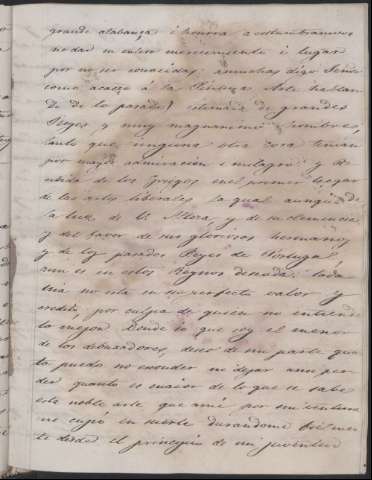 grande alabanza i honrra acostumbramos
no dar en entero merecimiento i lugar
por no ser conocidas: á muchas digo Señor
como acaece á la Pintura Arte hablan
do de lo pasado! estimada de grandes
Reyes, y muy magnanimos hombres,
tanto que ninguna otra cosa tenian
por mayor admiracion e milagro: y
de los Griegos en el primer lugar
de las artes liberales. La qual aunque de
la luz de V. Alteza, y de su clemencia
y del favor de sus gloriosos hermanos,
y de los pasados Reyes de Portugal,
aun es en estos Reynos desnuda: toda
via no esta en su perfecto valor y
credito, por culpa de quien no entiende
lo mejor. Donde io que soy el menor
de los debuxadores, deseo de mi parte quan
to puedo no esconder ni dejar aun per
der quanto es maior de lo que se sabe
este noble arte que amé por mi ventura
me cupó en suerte durandome
te desde el principio de mi juventud